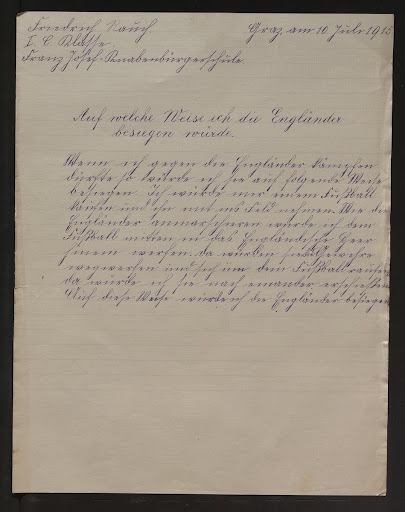 Friedrich Rauch. Graz, am 10. Juli 1915
I. C. Klasse.
Franz Josef-Knabenbürgerschule.
Auf welche Weise ich die Engländer
besiegen würde.
Wenn ich gegen die Engländer kämpfen
dürfte so würde ich sie auf folgende Weise
besiegen. Ich würde mir einen Fußball
kaufen und ihn mit ins Feld nehmen. Wie die
Engländer anmarschieren würde ich den
Fußball mitten in das Engländische Heer
hinein werfen. da würden sie die Gewehre
wegwerfen und sich um den Fußball raufen
da würde ich sie nach einander erschießen.
Auf diese Weise würde ich die Engländer besiegen.